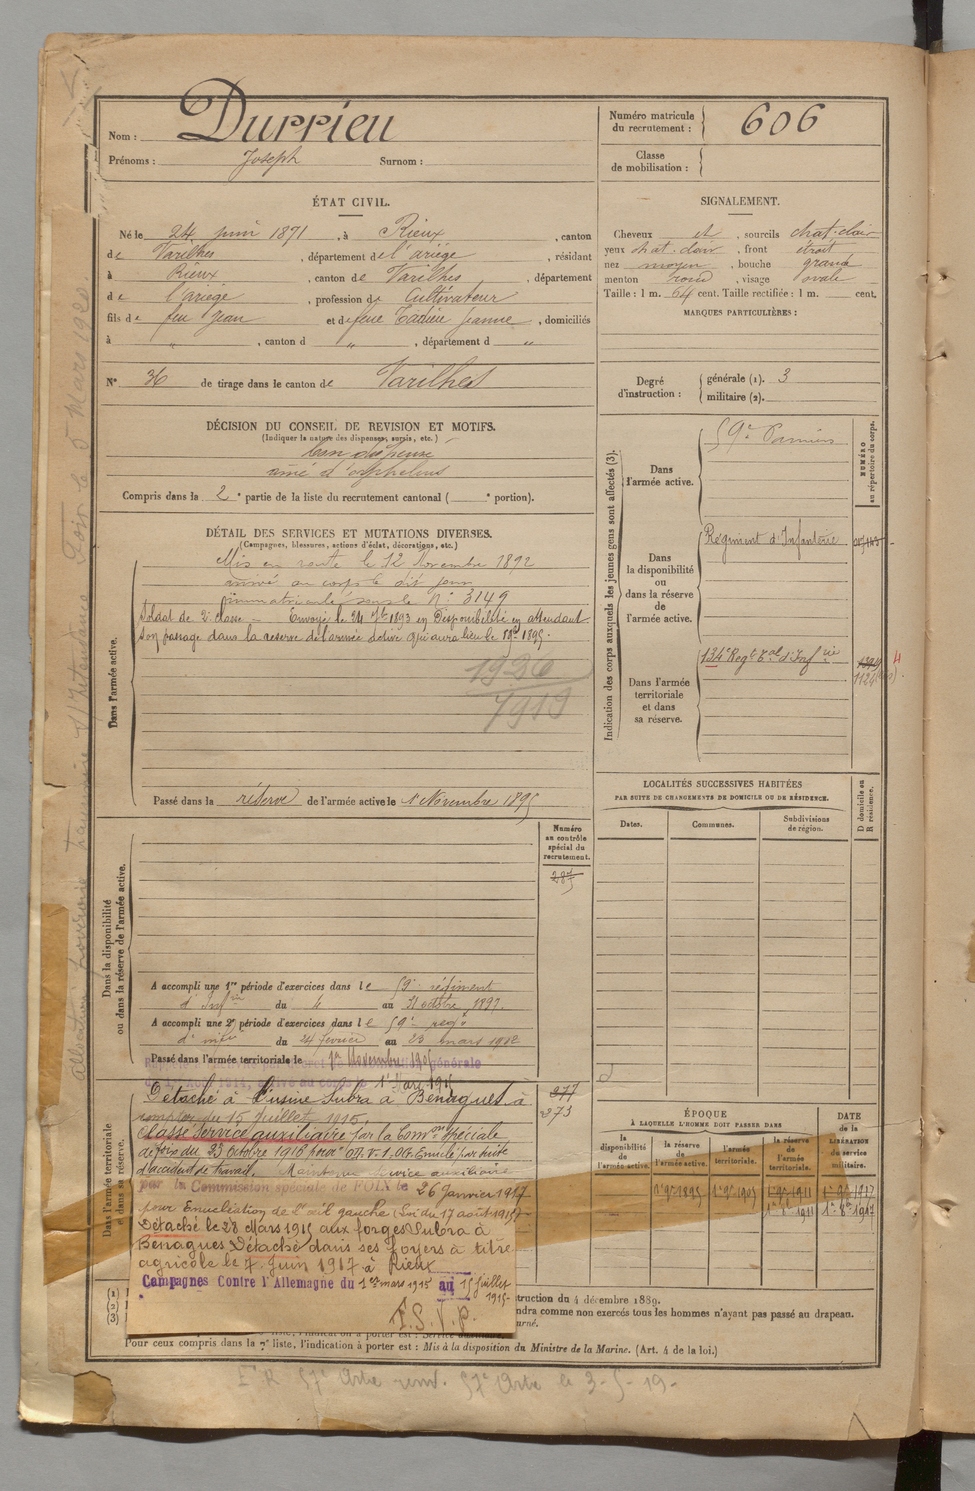 Nom : Durrieu
Prénoms : Joseph Surnom :
Numéro matricule du recrutement : 606
Classe de mobilisation :
ÉTAT CIVIL.
Né le 24 juin 1871, à Rieux, canton
de Varilhes, département de l'ariège, résidant
à Rieux, canton de Varilhes, département
de l'ariège, profession de Cultivateur
fils de feu Jean et de feue Jeanne, domiciliés
à " , canton d " , département d "
N° 36 de tirage dans le canton de Varilhes
SIGNALEMENT.
Cheveux et, sourcils chat. clair
yeux chat. clair, front étroit
nez moyen, bouche grande
menton rond, visage ovale
Taille : 1 m. 64 cent. Taille rectifiée : 1 m. cent.
MARQUES PARTICULIÈRES :
Degré d'instruction : générale (1). 3
militaire (2).
DÉCISION DU CONSEIL DE REVISION ET MOTIFS.
(Indiquer la nature des dispenses, sursis, etc.)
bon dispensé
ainé d'orphelins
Compris dans la 2e partie de la liste du recrutement cantonal ( e portion).
DÉTAIL DES SERVICES ET MUTATIONS DIVERSES.
(Campagnes, blessures, actions d'éclat, décorations, etc.)
Dans l'armée active.
Mis en route le 12 Novembre 1892
arrivé au corps le dit jour
immatriculé sous le N° 3149
Soldat de 2e classe - Envoyé le 24 7bre 1893 en Disponibilité en attendant
son passage dans la réserve de l'armée active qui aura lieu le 1895.
1926
1919
Passé dans la réserve de l'armée active le 1 Novembre 1895
Indication des corps auxquels les jeunes gens sont affectés (3).
NUMÉRO au répertoire du corps.
Dans l'armée active.
59e Pamiers
Dans la disponibilité ou dans la réserve de l'armée active.
Régiment d'Infanterie
Dans l'armée territoriale et dans sa réserve.
134e Regt Tal d'Infrie
LOCALITÉS SUCCESSIVES HABITÉES
PAR SUITE DE CHANGEMENTS DE DOMICILE OU DE RÉSIDENCE.
Dates. Communes. Subdivisions de région.
D domicile ou R résidence.
Numéro au contrôle spécial du recrutement.
287
Dans la disponibilité ou dans la réserve de l'armée active.
A accompli une 1re période d'exercices dans le 59e régiment
d'Infrie du 4 au 31 octbre 1897.
A accompli une 2e période d'exercices dans le 59e regt
d'infrie du 24 février au 23 mars 1902
Passé dans l'armée territoriale le 1er Novembre 1905
1 Mars 1915
Dans l'armée territoriale et dans sa réserve.
277
273
Détaché à l'usine Subra à Bénagues à
compter du 15 Juillet 1915.
Classé Service auxiliaire par la Comon Spéciale
de Foix du 23 Octobre 1916 pour
d'accident de travail. Maintenu service auxiliaire
par la Commission spéciale de FOIX le 26 Janvier 1917
pour Enucléation de l'œil gauche (Loi du 17 août 1915)
Détaché le 28 Mars 1915 aux forges Subra à
Bénagues Détaché dans ses foyers à titre
agricole le 7 Juin 1917 à Rieux
Campagnes Contre l'Allemagne du 1er mars 1915 au 15 juillet
1915-
T.S.V.P.
ÉPOQUE
À LAQUELLE L'HOMME DOIT PASSER DANS
DATE de la LIBÉRATION du service militaire.
la disponibilité de l'armée active. la réserve de l'armée active. l'armée territoriale. la réserve de l'armée territoriale.
1er 9bre 1895 1er 9bre 1905 1er 9bre 1911 1er 9bre 1917
(1)
(2)
(3)
struction du 4 décembre 1889.
ndra comme non exercés tous les hommes n'ayant pas passé au drapeau.
Pour ceux compris dans la 7e liste, l'indication à porter est : Mis à la disposition du Ministre de la Marine. (Art. 4 de la loi.)
57e Artie le 3-5-19-